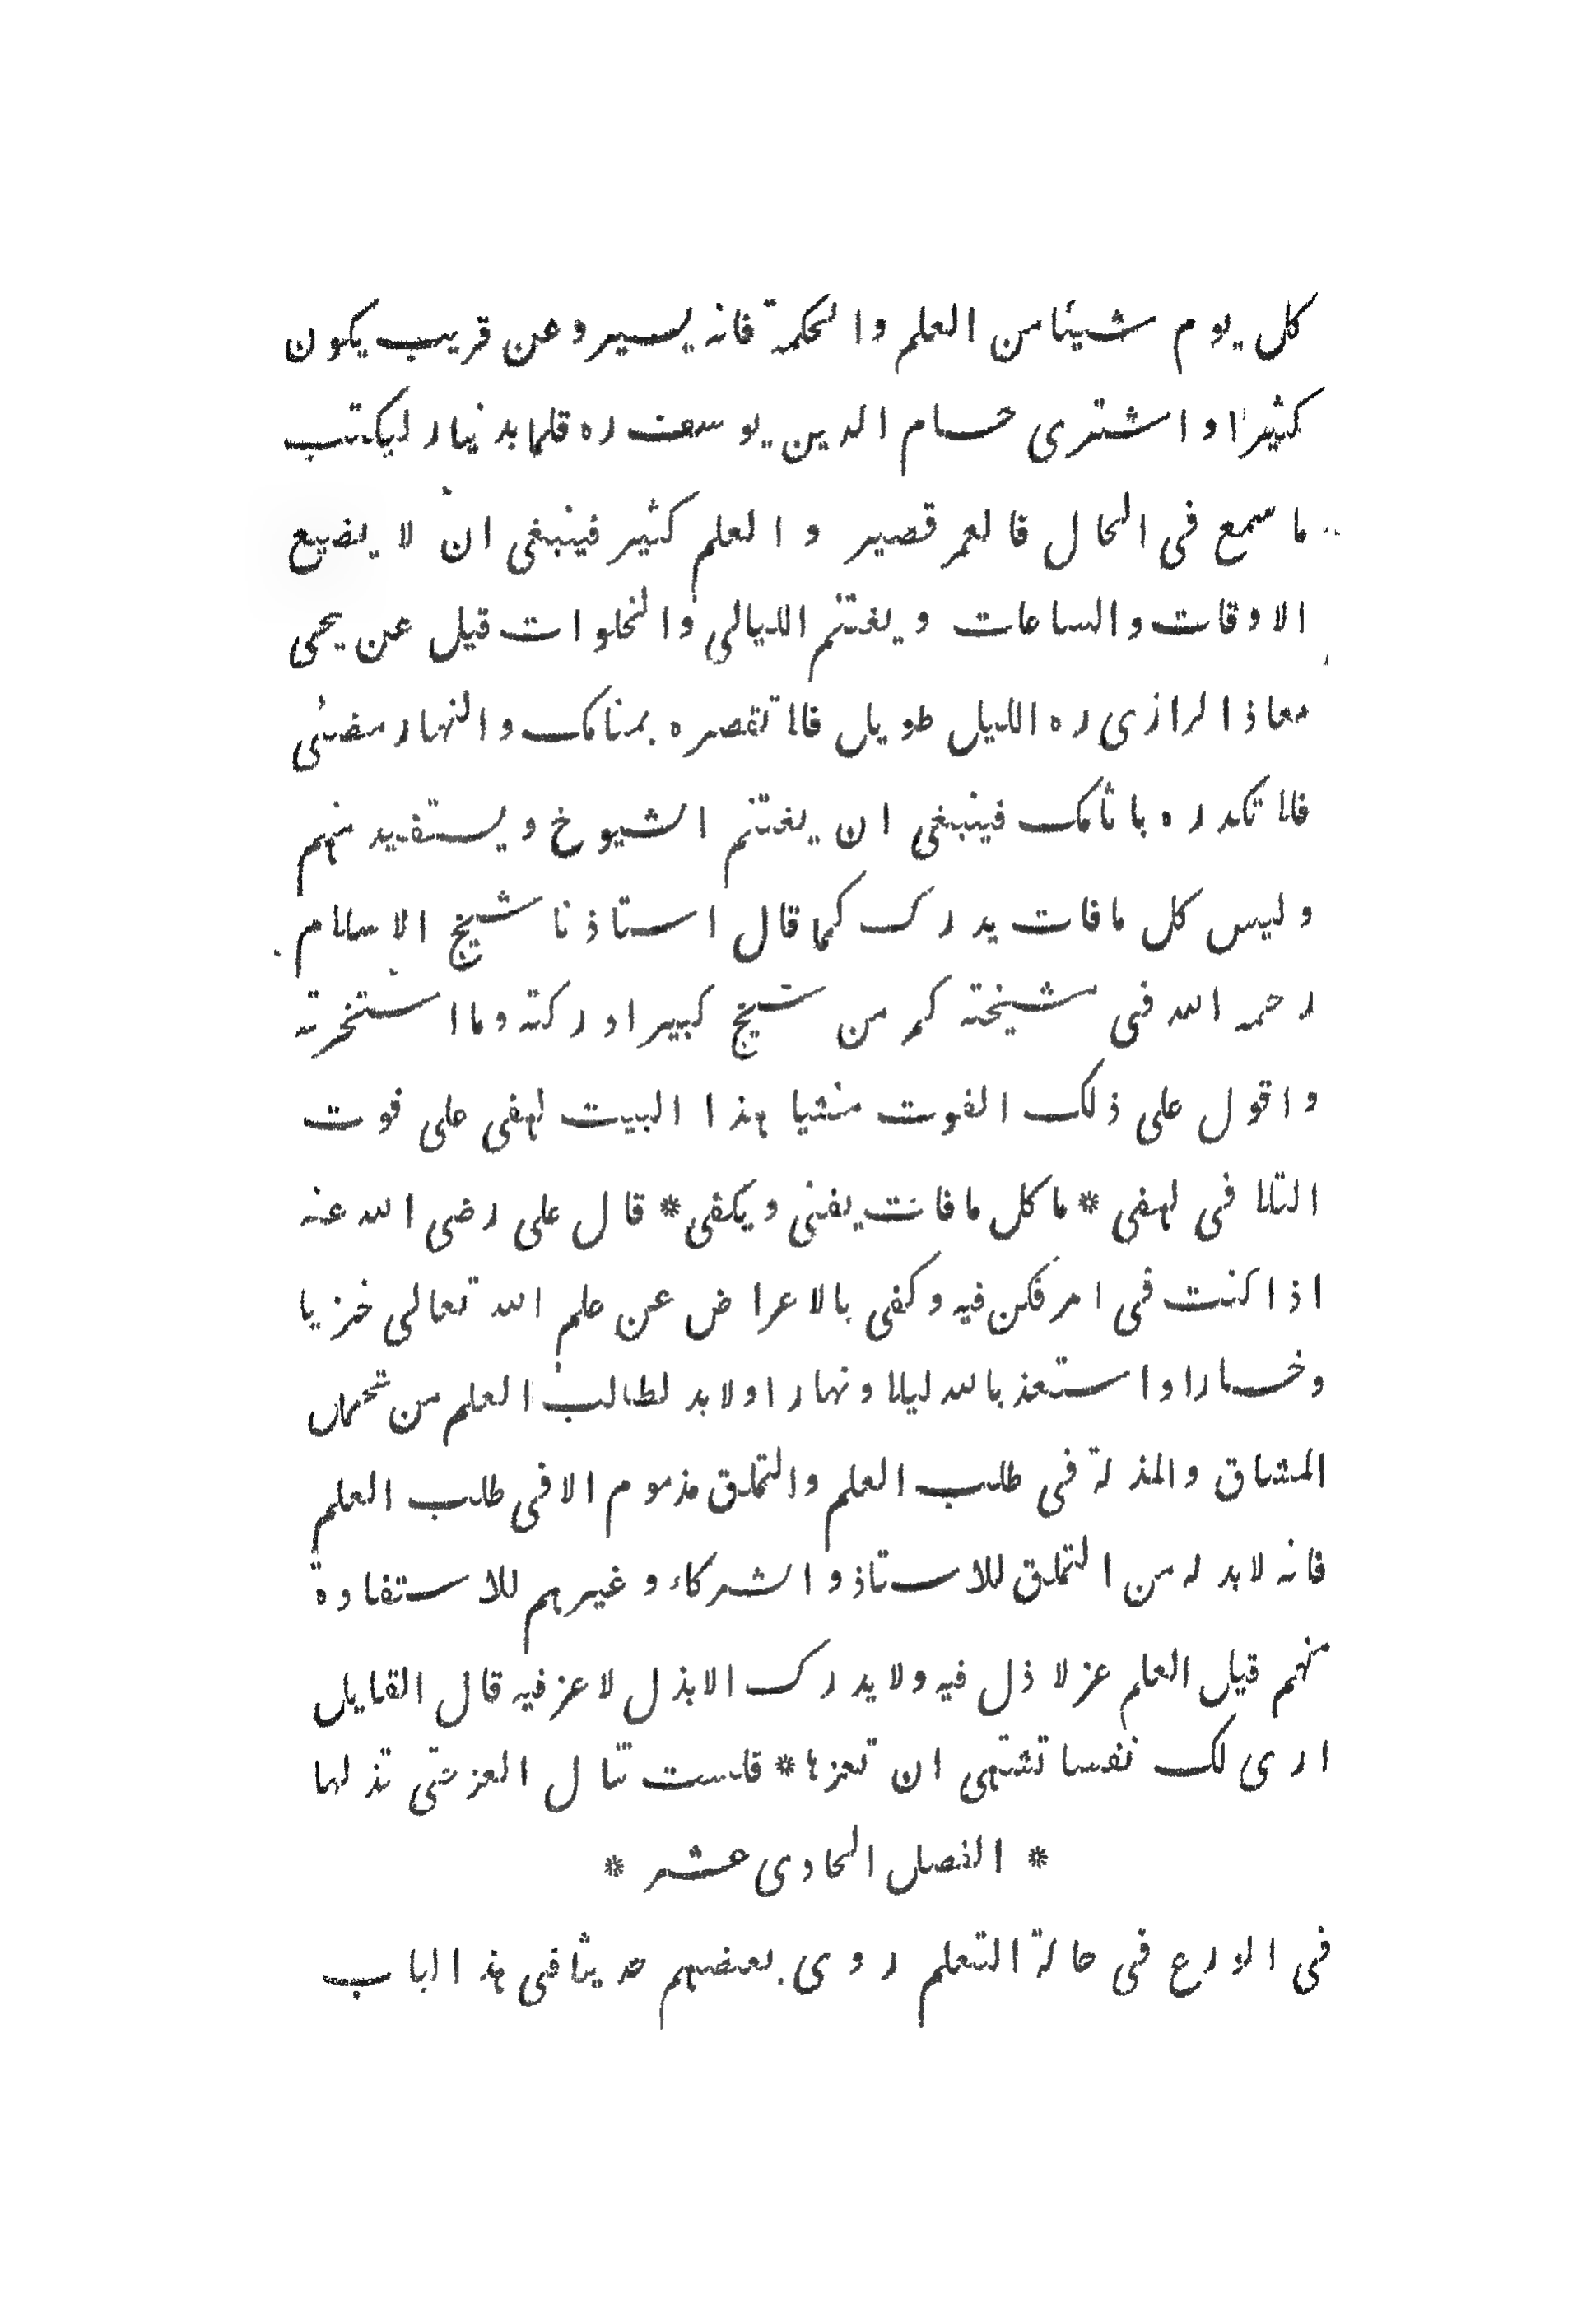 كل يوم شيئا من العلم والحكمة فانه يسير وعن قريب يكون
كثيرا واشترى حسام الدين يوسف ره قلما بدينار ليكتب
ما سمع فى الحال فالعمر قصير والعلم كثير فينبغى ان لا يضيع
الاوقات والساعات ويغتنم الليالى والخلوات قيل عن يحيى
معاذ الرازى ره الليل طويل فلا تقصره بمنامك والنهار مضئى
فلا تكدره باثامك فينبغى ان يغتنم الشيوخ ويستفيد منهم
وليس كل ما فات يدرك كما قال استاذنا شيخ الاسلام
رحمه الله فى مشيخته كم من شيخ كبير ادركته وما استخبرته
واقول على ذلك الفوت منشيا هذا البيت لهفى على فوت
التلافى لهفى * ما كل ما فات يفنى ويكفى * قال على رضى الله عنه
اذا كنت فى امر فكن فيه وكفى بالاعراض عن علم الله تعالى خزيا
وخسارا واستعذ بالله ليلا ونهارا ولابد لطالب العلم من تحمل
المشاق والمذلة فى طلب العلم والتملق مذموم الا فى طلب العلم
فانه لابد له من التملق للاستاذ والشركاء وغيرهم للاستفادة
منهم قيل العلم عز لا ذل فيه ولا يدرك الا بذل لا عز فيه قال القايل
ارى لك نفسا تشتهى ان تعزها * فلست تنال العز حتى تذلها
* الفصل الحادى عشر *
فى الورع فى حالة التعلم روى بعضهم حديثا فى هذ الباب